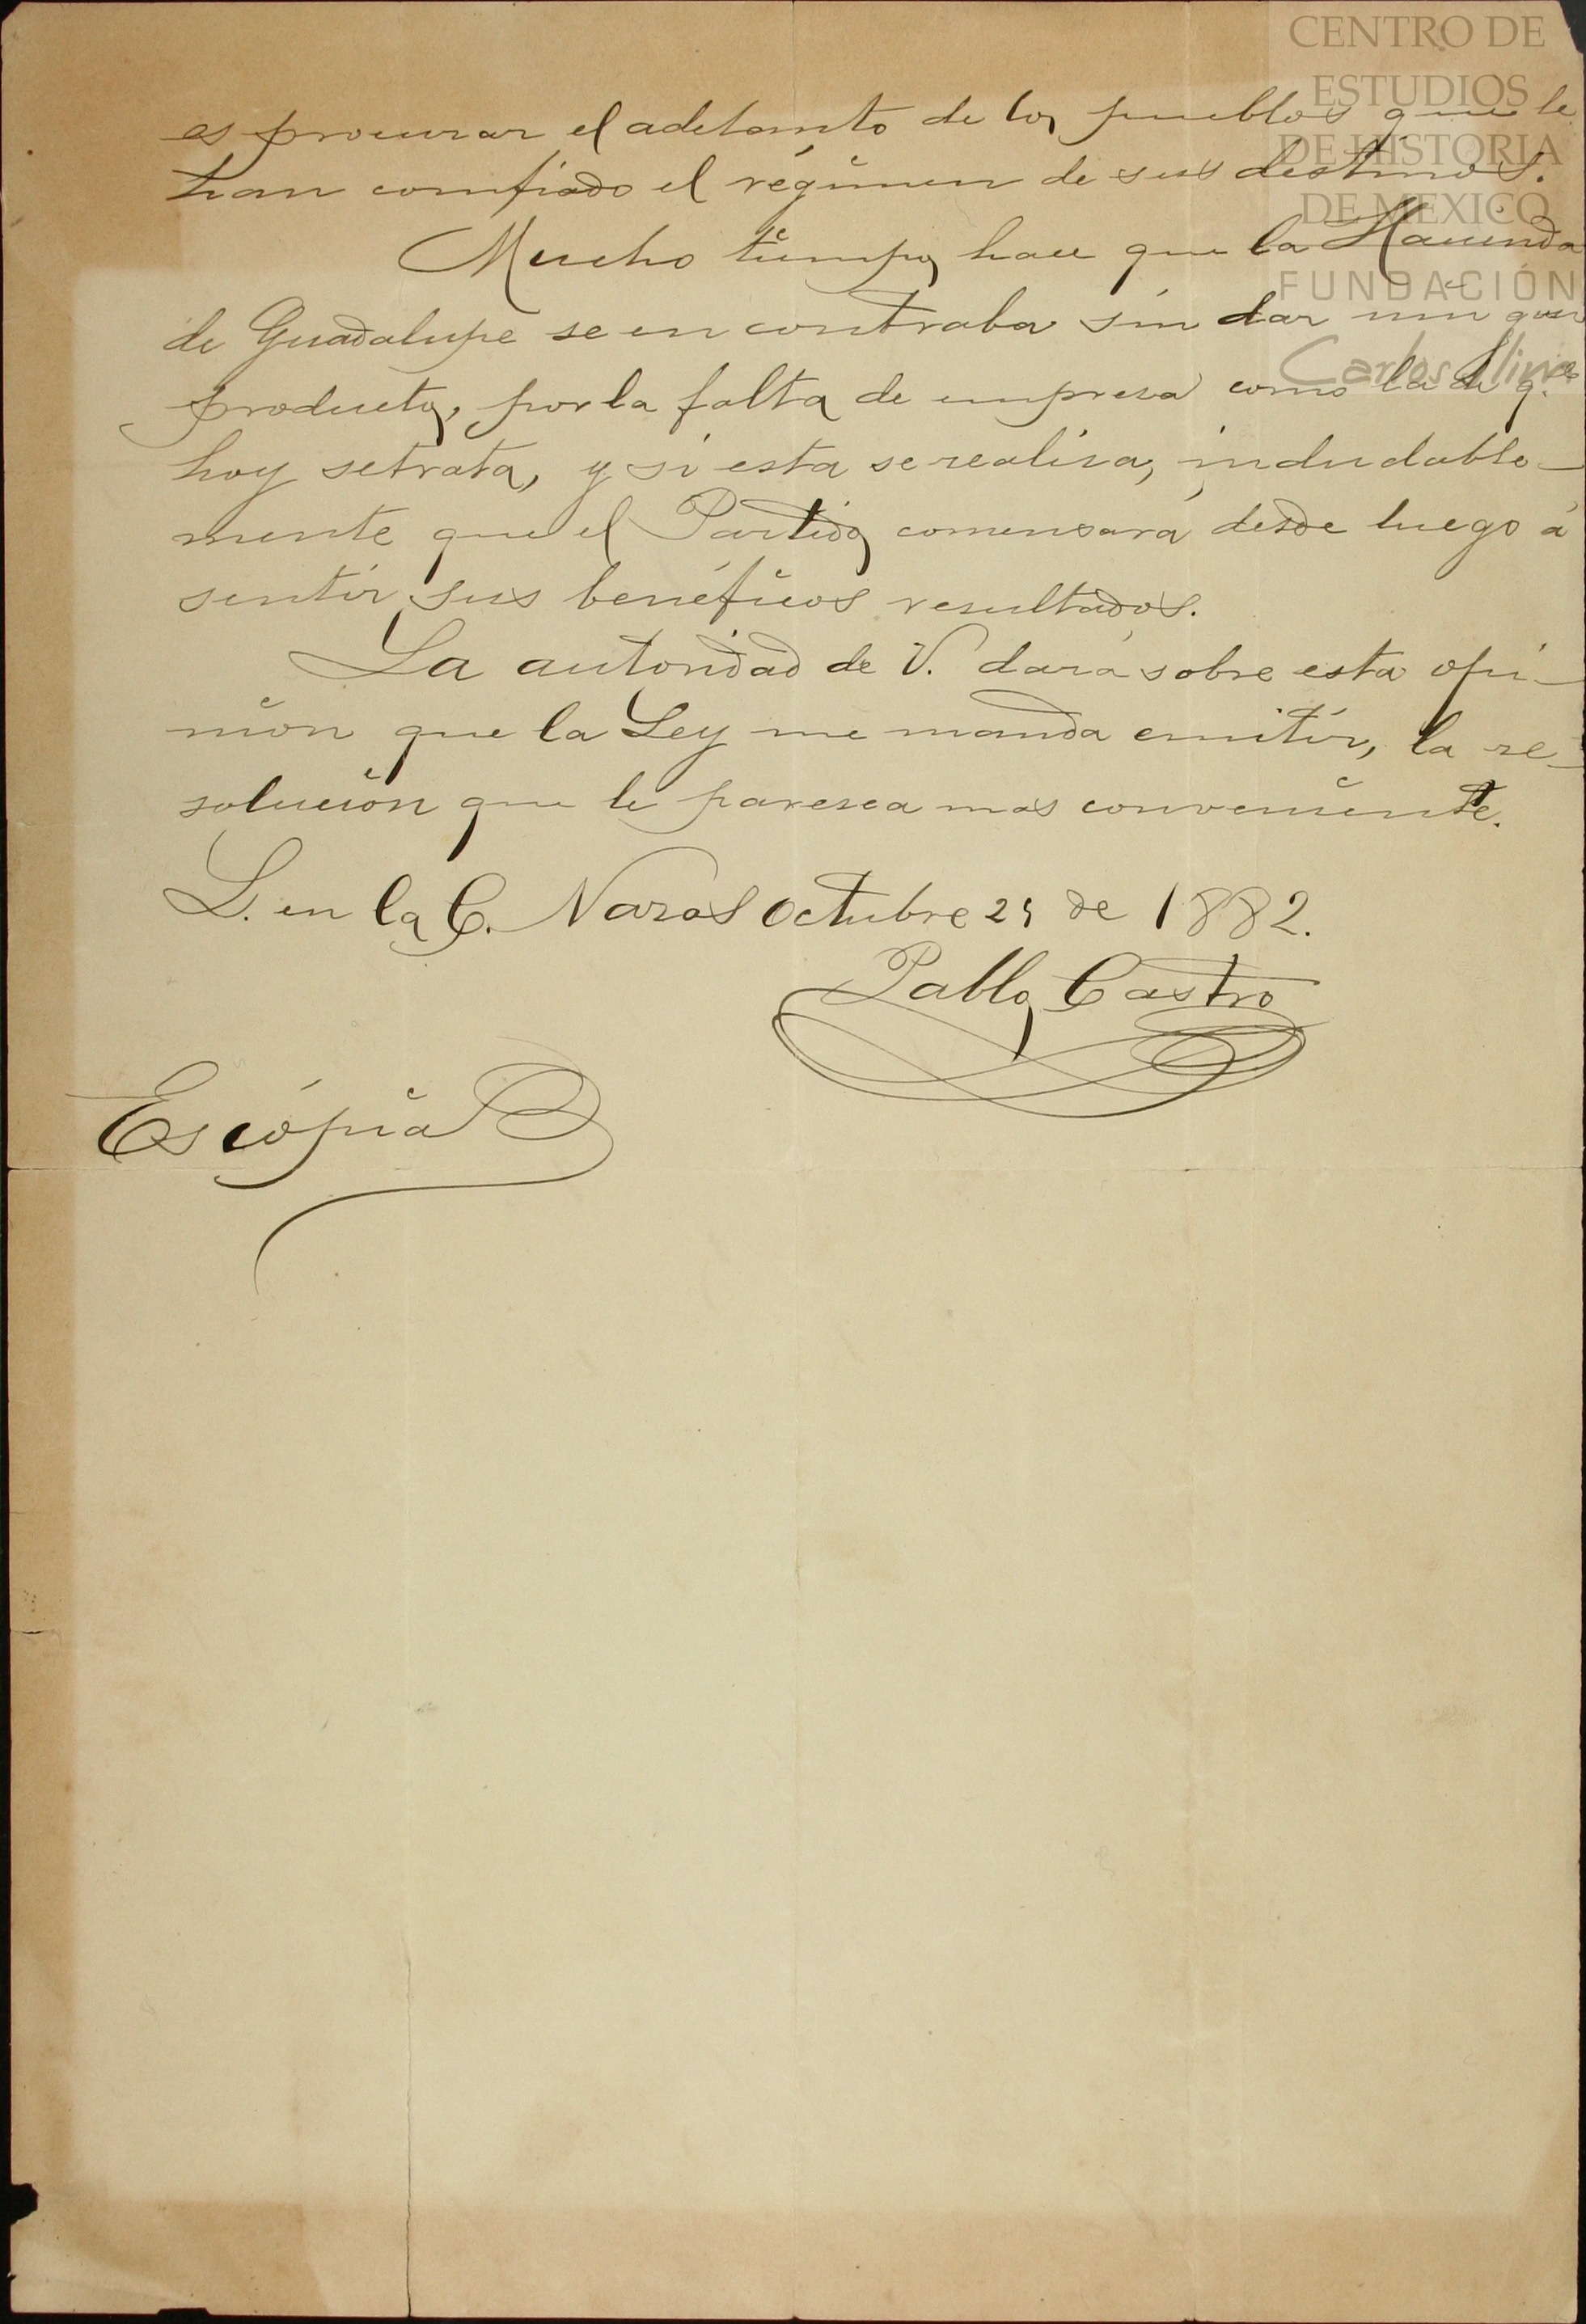 CENTRO DE
ESTUDIOS
DE HISTORIA
DE MEXICO
FUNDACIÓN
Carlos Slim
es procurar el adelanto de los pueblos que le
han comfiado el régimen de sus destinos.
Mucho tiempo hace que la Hacienda
de Guadalupe se encontraba sin dar ningun
producto, por la falta de empresa como la de q.e
hoy setrata, y si esta se realisa, indudable-
mente que el Partido comensará desde luego á
sentir sus benéficos resultados.
La autoridad de V. dará sobre esta opi-
nion que la Ley me manda emitir, la re-
solución que le paresca mas conveniente.
L. en la C. Nazas Octubre 25 de 1882.
Pablo Castro
Es cópia